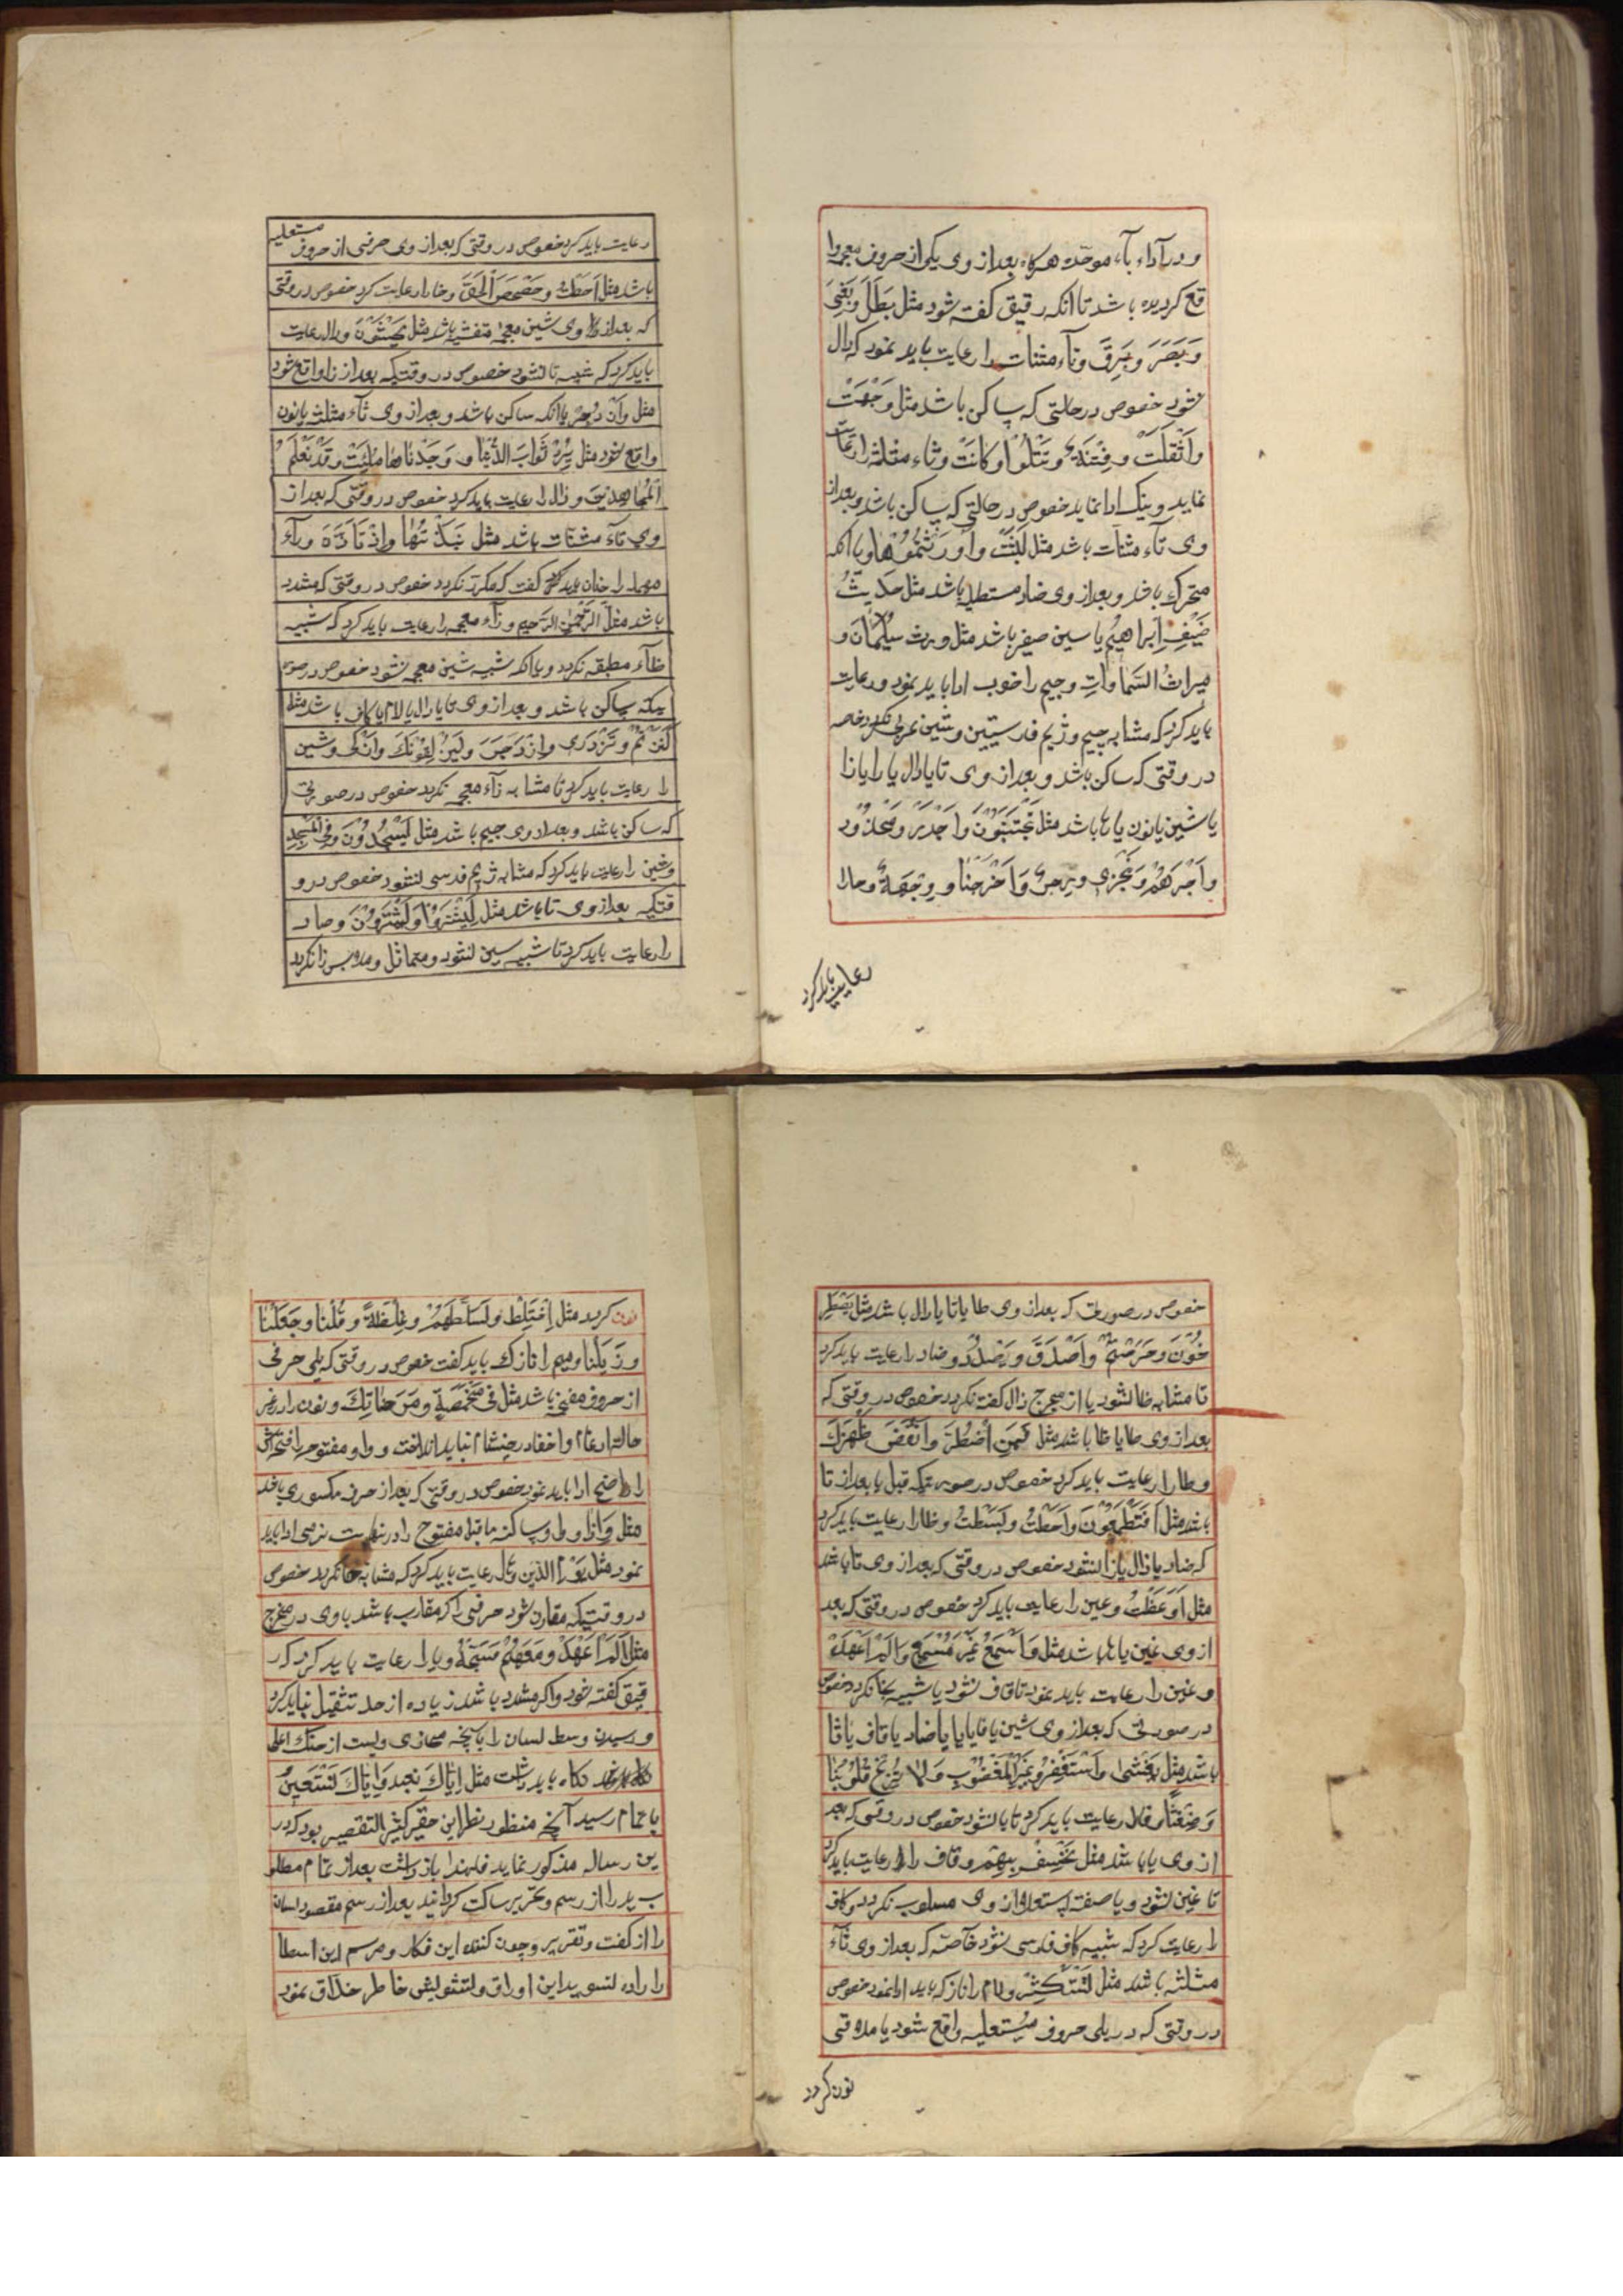 و در آداء باء موحّده هرکاه بعد از وی یکی از حروف معجمه وا
قع کردیده باشد تا انکه رقیق کفته شود مثل بَطَلَ وَبَغْیَ
وَبَصَرَ وَبَرِقَ و تآء مثنات را رعایت باید نمود که دال
نشود خصوص در حالتی که ساکن باشد مثل وَجَهَتْ
وَاَثْقَلَتْ وفِتْنَة وتَتْلُوْا وَکانَتْ و ثاء مثلثه را رعایت
نماید و نیک ادا نماید خصوص در حالتی که ساکن باشد و بعد از
وی تآء مثنات باشد مثل لَبِثْتَ واُورِثْتُمُوْهٰا و یا انکه
متحرک باشد و بعد از وی ضاد مستطیله باشد مثل حَدِیْثُ
ضَیْفِ اِبراهیْمَ یا سین صفیر باشد مثل ورث سُلَیْمٰانَ و
میراثُ السَّماواتِ و جیم را خوب ادا باید نمود و رعایت
باید کرد که مشابه چیم و ژیم فارسیین وشین عربی نکردد خاصه
در وقتی که ساکن باشد و بعد از وی تا یا دال یا را یا زا
یا شین یا نون یا ها باشد مثل تَجْتَنِبُوْنَ وَاَجْدَرُ
وَاَجْرَهُمْ وَنَجْزِی وَرِجْسٌ وَاَخْرَجْنٰا و وِجْهَةٌ و حا را
رعایت باید کرد
رعایت باید کرد خصوص در وقتی که بعد از وی حرفی از حروف مستعلیه
باشد مثل اَحَطْتُ وحَصْحَصَ اَلْحَقُّ و خا را رعایت کرد خصوص در وقتی
که بعد از وی شین معجمه متفشیه باشد مثل یَخْشَوْنَ و دال رعایت
باید کرد که شبیه تا نشود خصوص در وقتیکه بعد از زا واقع شود
مثل وَاَن یا انکه ساکن باشد و بعد از وی ثآء مثلث یا نون
واقع شود مثل یُرِدْ ثَوابَ الدُّنْیٰا و وَجَدْنٰاهٰا مُلِئَتْ وَقَدْ نَعْلَمُ
اَلْمُجٰاهِدِیْنَ و ذال را رعایت باید کرد خصوص در وقتی که بعد از
وی تآء مثنات باشد مثل نَبَذْتُهٰا وَاِذْ تَاَذَّنَ و رآء
مهمله را چنان باید کفت که مکرّر نکردد خصوص در وقتی که مشدد
باشد مثل اَلرَّحْمٰنِ الرَّحیم و زآء معجمه را رعایت باید کرد که شبیه
ظآء مطبقه نکردد و یا انکه شبیه شین معجمه نشود خصوص در صور
تیکه ساکن باشد و بعد از وی تا یا دال یا لام یا کاف باشد مثل
کَنَزْتُمْ وتَزْدَرِی وازْدَجَرَ ولَیُزْلِقُوْنَكَ وَاَزْکٰی وشین
را رعایت باید کرد تا مشابه زآء معجمه نکردد خصوص در صورتی
که ساکن باشد و بعد از وی جیم باشد مثل لَیَسْجُدُوْنَ وَفِی المَسْجِدِ
وشین را رعایت باید کرد که مشابه ژیم فارسی نشود خصوص در و
قتیکه بعد از وی تا باشد مثل لِیَشْتَرُوْا وَلَیَشْتَرُوْنَ وصاد
را رعایت باید کرد تا شبیه سین نشود و مماثل زا نکردد
خصوص در صورتی که بعد از وی طا یا تا یا دال باشد مثل یَصْطَرِ
خُوْنَ وَحَرَصْتُمْ واَصْدَقُ وَیَصْدُر و ضاد را رعایت باید کرد
تا مشابه ظا نشود یا از مخرج ذال کفته نکردد خصوص در وقتی که
بعد از وی طا یا ظا باشد مثل فَمَنِ اُضْطُرَّ وَاَنْقَضَ ظَهْرَكَ
وطا را رعایت باید کرد خصوص در صورتیکه قبل یا بعد از تا
باشد مثل اَفَتَطْمَعُوْنَ واَحَطْتُ وبَسَطْتُ وظا را رعایت باید کرد
که ضاد یا ذال یا زا نشود خصوص در وقتی که بعد از وی تا باشد
مثل اَوَعَظْتَ وعین را رعایت باید کرد خصوص در وقتی که بعد
از وی غین یا ها باشد مثل وَاسْمَعْ غَیْرَ مُسْمَعٍ واَلَمْ اَعْهَدْ
وغین را رعایت باید نمود تا قاف نشود یا شبیه بخا نکردد خصوص
در صورتی که بعد از وی شین یا فا یا یا ضاد یا قاف یا فا
باشد مثل یَغْشٰی واَسْتَغْفِرُ غَیْرِ الْمَغْضُوْبِ وَلا تُزِغْ قُلُوْبَنٰا
وفا را رعایت باید کرد تا با نشود خصوص در وقتی که بعد
از وی با باشد مثل نَخْسِفْ بِهِمُ وقاف را رعایت باید کرد
تا غین نشود و یا صفت استعلا از وی مسلوب نکردد وکاف
را رعایت کرد که شبیه کاف فارسی نشود خاصّه که بعد از وی ثآء
مثلثه باشد مثل لَتَسْتَکْثِرُ ولام را نازک باید ادا نمود خصوص
در وقتی که در یلی حروف مُستعلیه واقع شود یا ملاقی
نون کردد
نون کردد مثل اِخْتَلَطَ ولَسَلَّطَهُمْ وغِلْظَةً وقُلْنٰا وَجَعَلْنٰا
وزَیَّلْنٰا ومیم را نازک باید کفت خصوص در وقتی که یلی حرفی
از حروف مفخم باشد مثل فِی مَخْمَصَةٍ ومَرَضٌ ونون را در غیر
حالت ادغام واخفا در خیشوم نباید انداخت و واو مفتوحه را فتحه اش
را واضح ادا باید نمود خصوص در وقتی که بعد از حرف مکسوری باشد
مثل وَاِذا و واو ساکنه ماقبل مفتوح را در نهایت نرمی ادا باید
نمود مثل یَوْم الدّین وها رعایت باید کرد که مشابه حا نکردد خصوص
در وقتیکه مقارن شود حرفی را که مقارب باشد با وی در مخرج
مثل اَلَمْ اَعْهَدْ ومَعَهُمْ وسَبِّحْهُ ویا را رعایت باید کرد که ر
قیق کفته شود واکر مشدد باشد زیاده از حد تثقیل نباید کرد
و رسیدن وسط لسان را بآنچه محاذی ویست از حنک اعلی
نکاه باید داشت مثل اِیّٰاكَ نَعبد وَاِیّٰاكَ نَسْتَعینُ
باتمام رسید آنچه منظور نظر این حقیر کثیر التقصیر بود که در
ین رساله مذکور نماید فلهذا باز داشت بعد از تمام مطلو
ب ید را از رسم وتحریر ساکت کردانید بعد از رسم مقصود لسان
را از کفت وتقریر وچون کننده این فکار و مرسم این اسطا
را اراده تسوید این اوراق و تشویش خاطر خلاق نمود